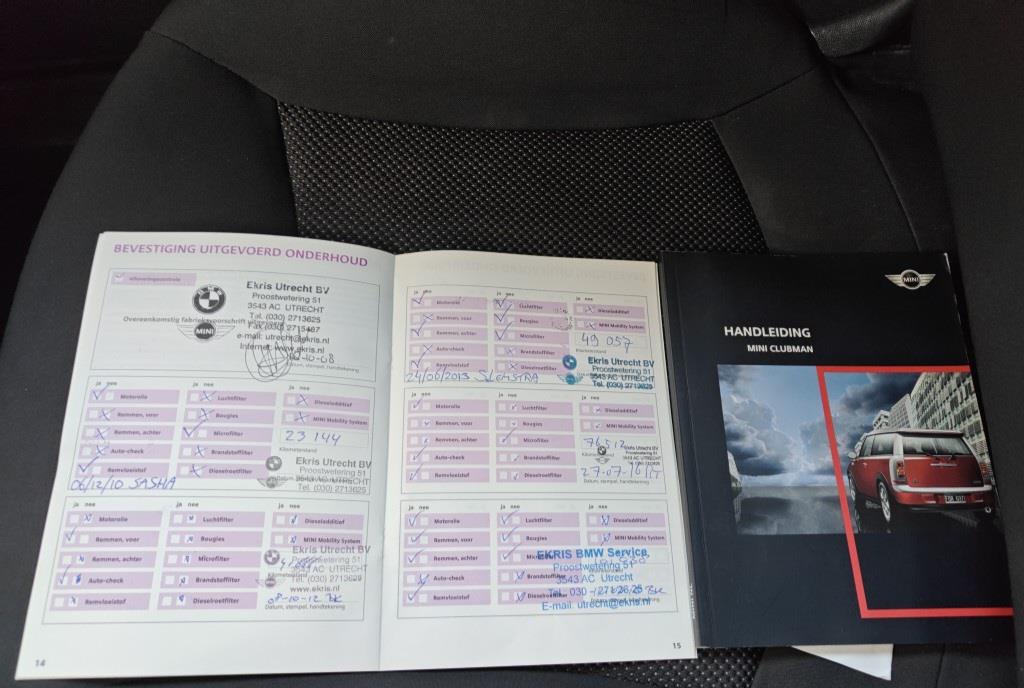 BEVESTIGING UITGEVOERD ONDERHOUD
Afleveringscontrole
Overeenkomstig fabrieksvoorschrift uitgevoerd
MINI
Ekris Utrecht BV
Proostwetering 51
3543 AC UTRECHT
Tel. (030) 2713625
Fax (030) 2715487
e-mail: utrecht@ekris.nl
Internet: www.ekris.nl
08-10-08
Datum, stempel, handtekening
ja nee ja nee ja nee
Motorolie Luchtfilter Dieseladditief
Remmen, voor Bougies MINI Mobility System
Remmen, achter Microfilter 23 144
Auto-check Brandstoffilter Kilometerstand
Remvloeistof Dieselroetfilter
06/12/10 SASHA
Ekris Utrecht BV
Proostwetering 51
3543 AC UTRECHT
Tel. (030) 2713625
ja nee ja nee ja nee
Motorolie Luchtfilter Dieseladditief
Remmen, voor Bougies MINI Mobility System
Remmen, achter Microfilter
Auto-check Brandstoffilter Kilometerstand
Remvloeistof Dieselroetfilter
Ekris Utrecht BV
Proostwetering 51
3543 AC UTRECHT
Tel. (030) 2713625
www.ekris.nl
08-10-12
Datum, stempel, handtekening
14
ja nee ja nee ja nee
Motorolie Luchtfilter Dieseladditief
Remmen, voor Bougies MINI Mobility System
Remmen, achter Microfilter 49 057
Auto-check Brandstoffilter Kilometerstand
Remvloeistof Dieselroetfilter
24/06/2013
Ekris Utrecht BV
Proostwetering 51
3543 AC UTRECHT
Tel. (030) 2713625
ja nee ja nee ja nee
Motorolie Luchtfilter Dieseladditief
Remmen, voor Bougies MINI Mobility System
Remmen, achter Microfilter
Auto-check Brandstoffilter
Remvloeistof Dieselroetfilter
Ekris Utrecht BV
Proostwetering 51
3543 AC UTRECHT
Datum, stempel, handtekening
ja nee ja nee ja nee
Motorolie Luchtfilter Dieseladditief
Remmen, voor Bougies MINI Mobility System
Remmen, achter Microfilter
Auto-check Brandstoffilter
Remvloeistof Dieselroetfilter
EKRIS BMW Service
Proostwetering 51
3543 AC Utrecht
Tel. 030 - 27 136 25
E-mail: utrecht@ekris.nl
15
MINI
HANDLEIDING
MINI CLUBMAN